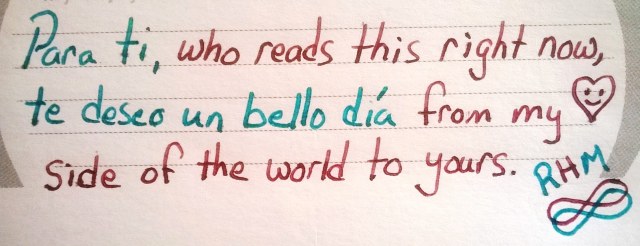 Para ti, who reads this right now,
te deseo un bello día from my
side of the world to yours.
RHM